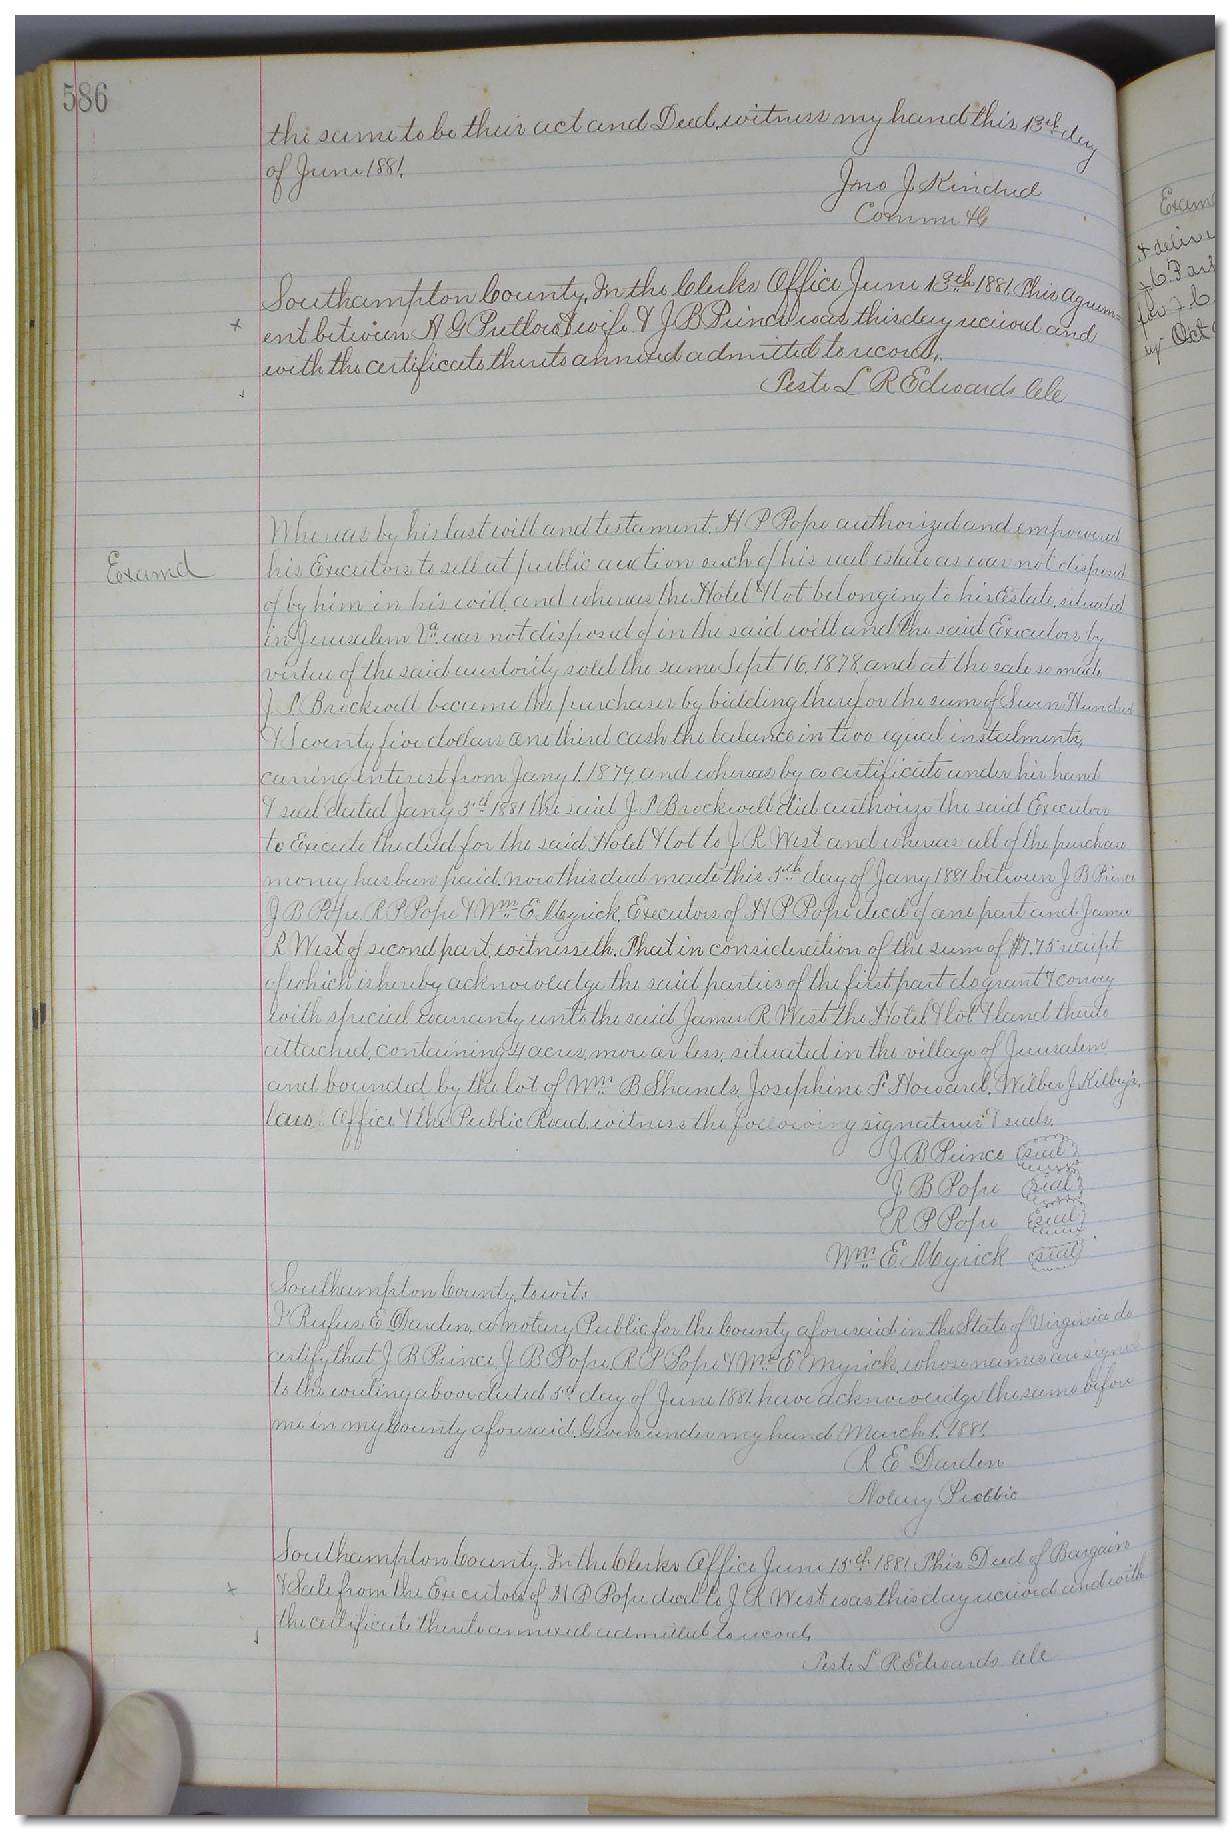 586
the same to be their act and Deed, witness my hand this 13th day
of June 1881.
Jno J. Kindred
Comm
Southampton County, In the Clerks Office June 13th 1881 This agreem=
ent between A G Pretlow & wife & J B Prince was this day received and
with the certificate thereto annexed admitted to record,
Teste L R Edwards
Examd
Whereas by his last will and testament, H P Pope authorized and empowered
his Executors to sell at public auction such of his real estate as was not disposed
of by him in his will, and whereas the Hotel & lot belonging to his Estate, situated
in Jerusalem Va. was not disposed of in the said will and the said Executors by
virtue of the said autority sold the same Sept 16, 1878, and at the sale so made
Brockwell became the purchaser by bidding therefor the sum of Seven Hundred
& Seventy five dollars one third cash the balance in two equal instalments,
carring interest from Jany 1, 1879, and whereas by a certificate under his hand
& seal dated Jany 5th 1881 the said Brockwell did authorize the said Executors
to Execute the deed for the said Hotel & lot to J. R. West and whereas all of the purchase
money has been paid, now this deed made this 5th day of Jany 1881 between J B Prince
J B Pope, R P Pope & Wm. E Myrick, Executors of H P Pope decd of one part and James
R West of second part, witnesseth, That in consideration of the sum of $7.75 receipt
of which is hereby acknowledge the said parties of the first part do grant & convey
with special warranty unto the said James R West the Hotel & lot & land thereto
attached, containing 4 acres, more or less, situated in the village of Jerusalem
and bounded by the lot of Wm. B Shands, Josephine Howard, Wilber J. Kilby's,
Law Office & the Public Road, witness the following signatures & seals,
J B Prince seal
J B Pope seal
R P Pope seal
Wm. E Myrick seal
Southampton County, to wit:
I Rufus E Darden, a Notary Public for the County aforesaid in the State of Virginia do
certify that J B Prince, J B Pope, R P Pope & Wm. E Myrick, whose names are signed
to the writing above dated 5th day of June 1881 have acknowledge the same before
me in my County aforesaid, Given under my hand March 1, 1881
R E Darden
Notary Public
Southampton County, In the Clerks Office June 15th 1881 This Deed of Bargain
& Sale from the Executors of H P Pope decd to J R West was this day received and with
the certificate thereto annexed admitted to record,
Teste L R Edwards
Exam
& delive
Oct